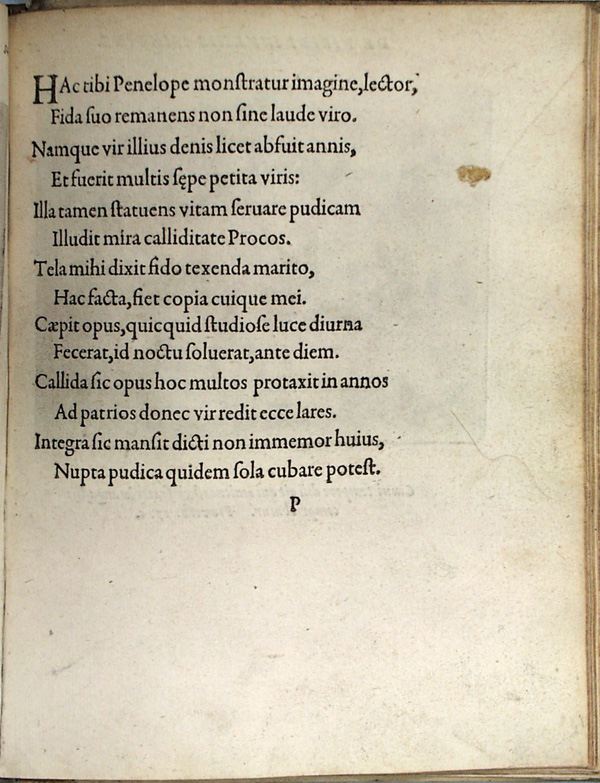 HAc tibi Penelope monſtratur imagine, lector,
Fida ſuo remanens non ſine laude viro.
Namque vir illius denis licet abfuit annis,
Et fuerit multis ſępe petita viris:
Illa tamen ſtatuens vitam ſeruare pudicam
Illudit mira calliditate Procos.
Tela mihi dixit fido texenda marito,
Hac facta, fiet copia cuique mei.
Cæpit opus, quicquid ſtudioſe luce diurna
Fecerat, id noctu ſoluerat, ante diem.
Callida ſic opus hoc multos protaxit in annos
Ad patrios donec vir redit ecce lares.
Integra ſic manſit dicti non immemor huius,
Nupta pudica quidem ſola cubare poteſt.
P